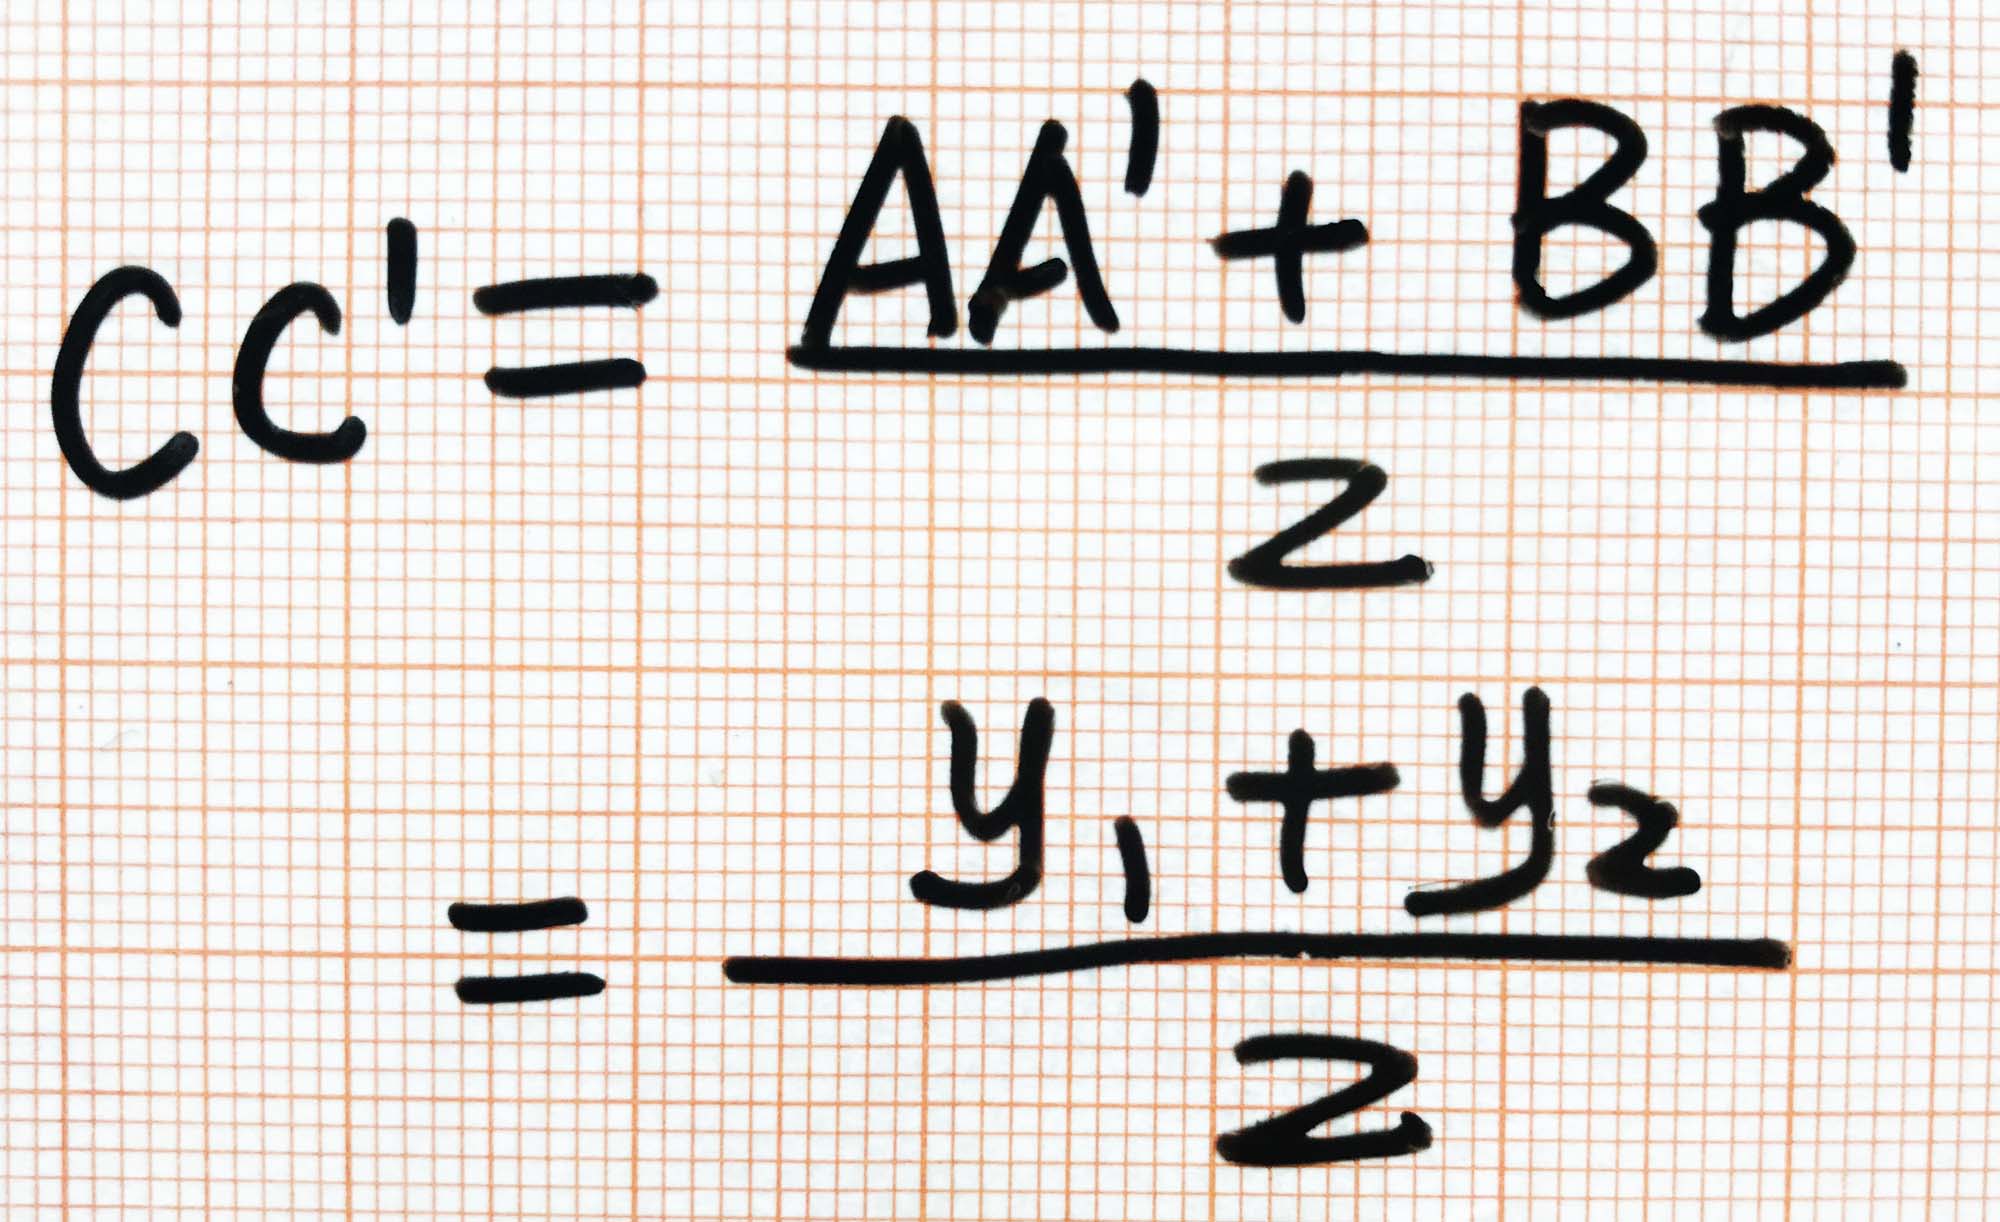 CC' = (AA' + BB') / 2
= (y₁ + y₂) / 2